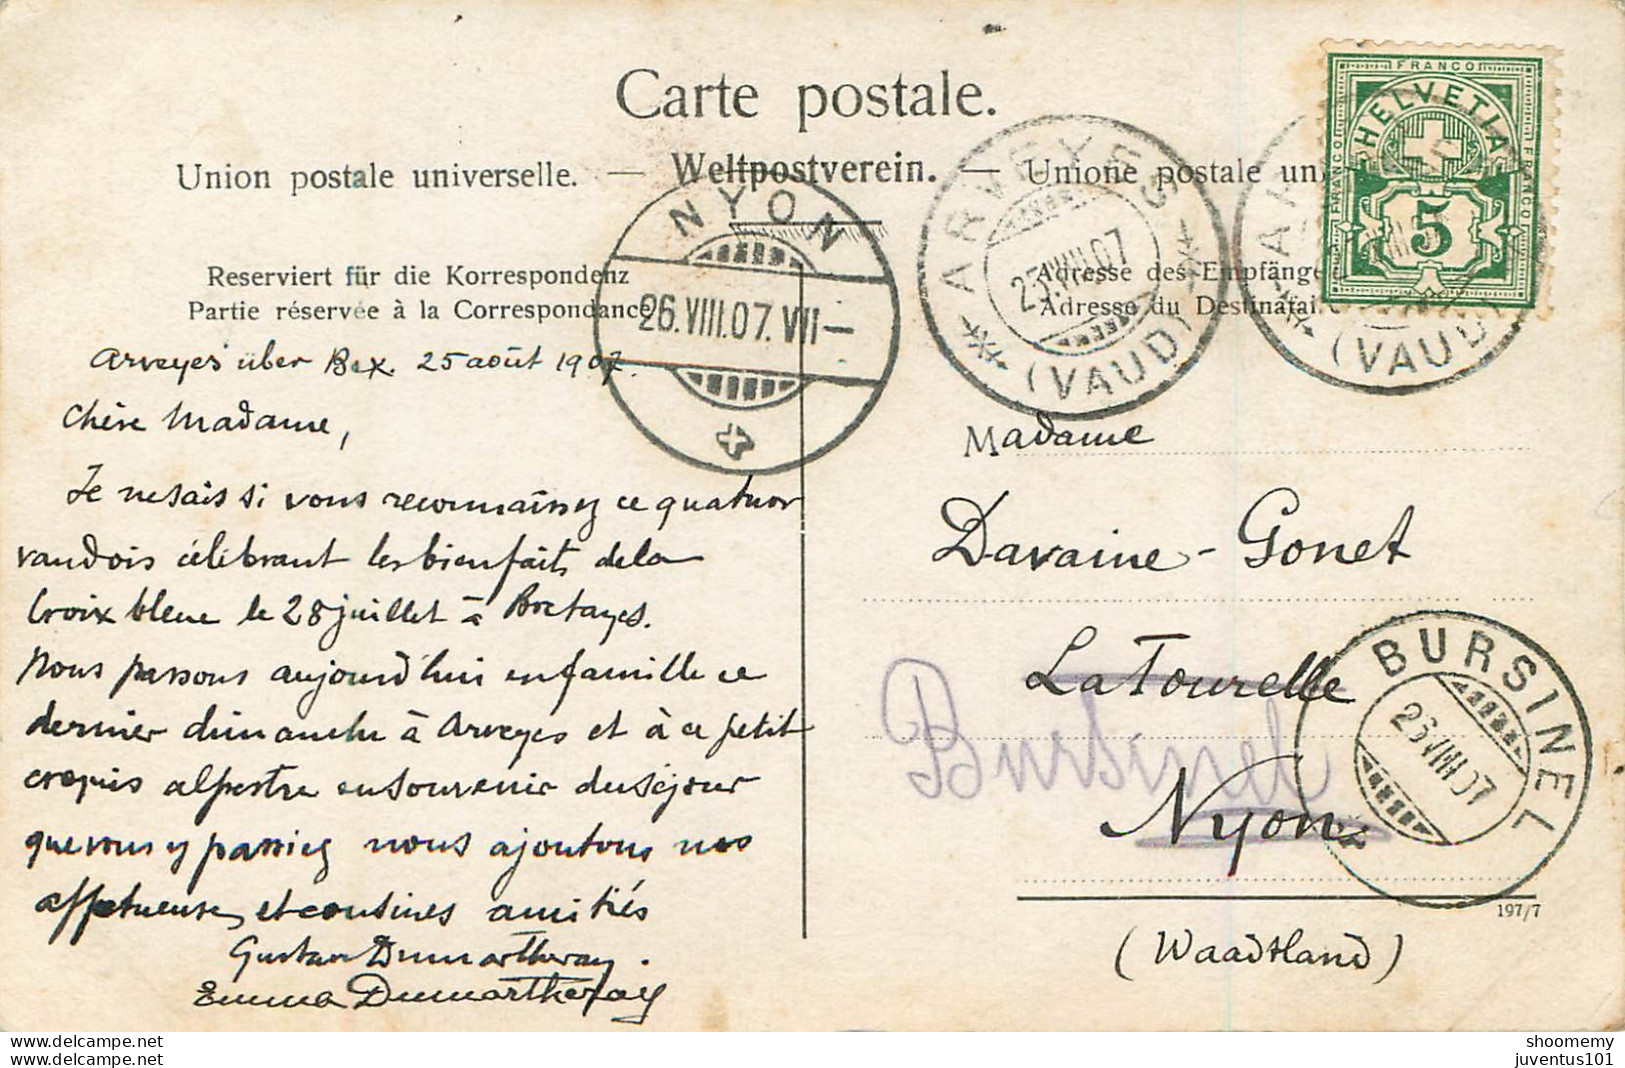 Carte postale.
Union postale universelle. — Weltpostverein. — Unione postale un
Reserviert für die Korrespondenz
Partie réservée à la Correspondance
Adresse des Empfänge
Adresse du Destinatai
NYON
26.VIII.07.VII—
ARVEYES
25.VIII.07
(VAUD)
(VAUD)
FRANCO
HELVETIA
FRANCO
FRANCO
5
Arveyes über Bex. 25 août 1907.
Chère Madame,
Je ne sais si vous reconnaissez ce quatuor
vaudois célébrant les bienfaits de la
Croix bleue le 28 juillet à Bretayes.
Nous passons aujourd'hui en famille ce
dernier dimanche à Arveyes et à ce petit
croquis alpestre en souvenir du séjour
que vous y passiez nous ajoutons nos
affectueuses et cousines amitiés
Gustave Dumartheray.
Emma Dumartheray
Madame
Davaine-Gonet
La Tourelle
Bursinel
Nyon
(Waadtland)
BURSINEL
26.VIII.07
197/7
shoomemy
juventus101